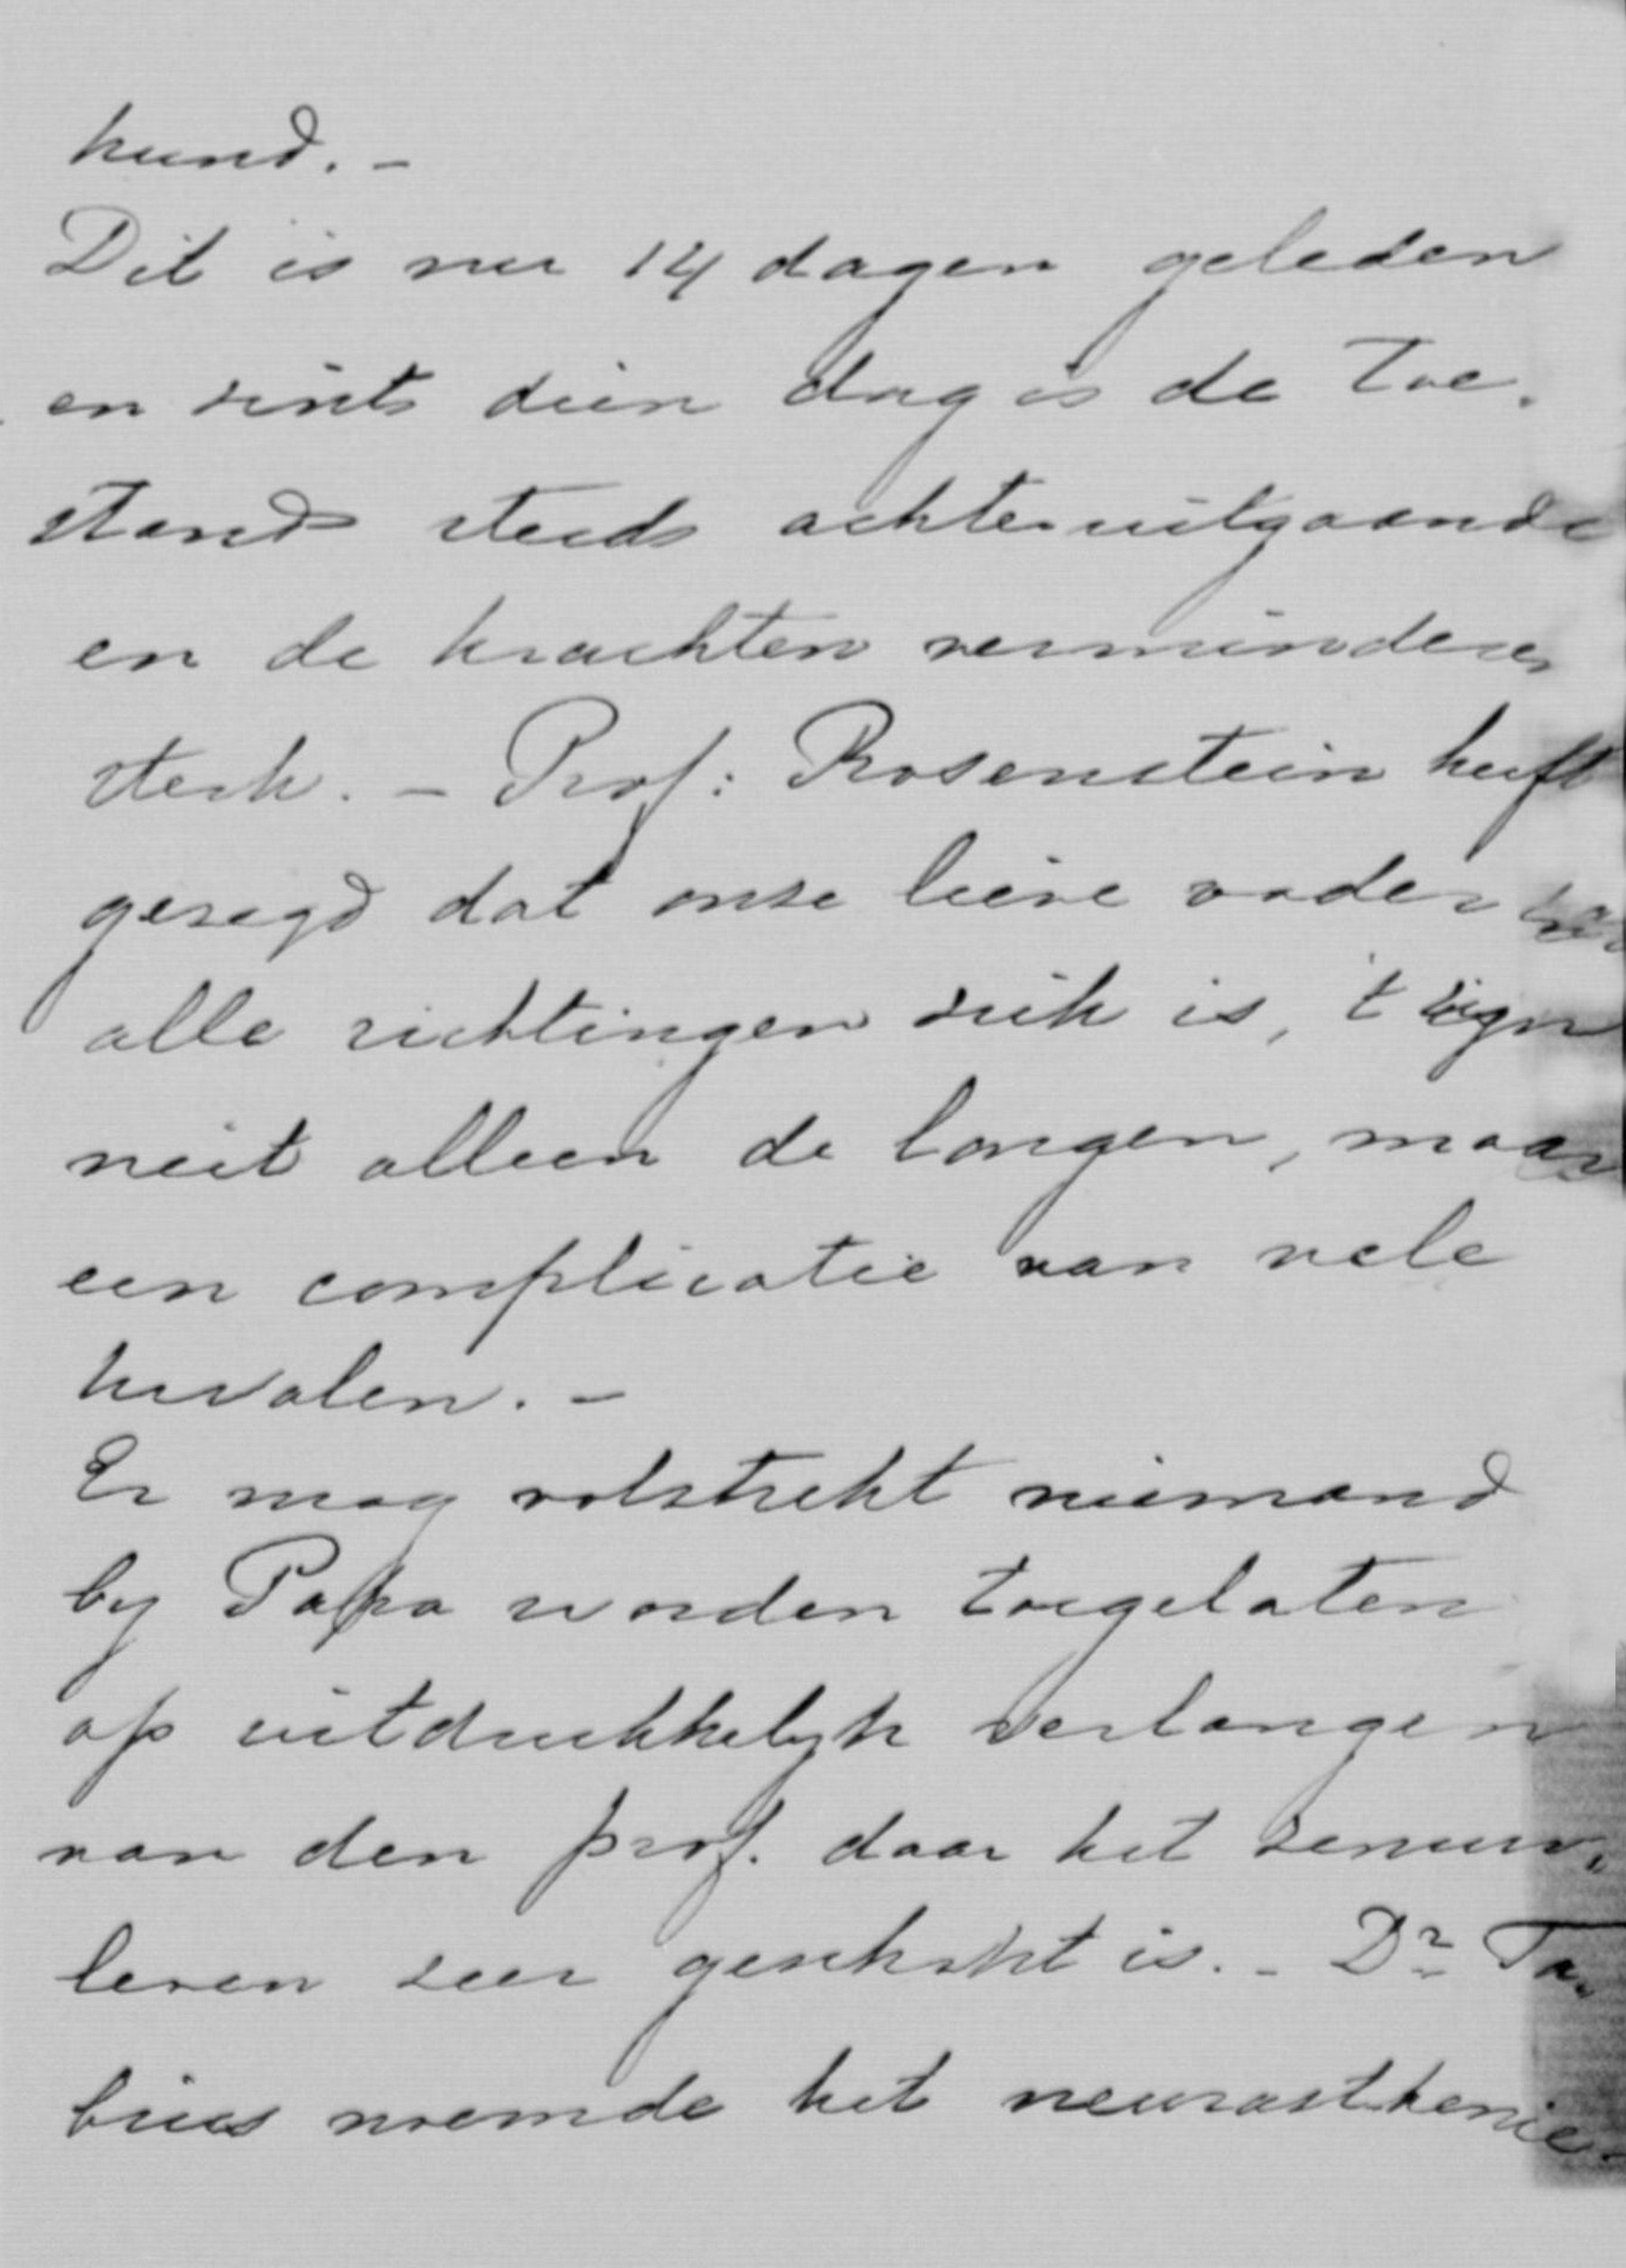 kund. -
Dit is nu 14 dagen geleden
en sints dien dag is de toe.
stand steeds achteruitgaande
en de krachten verminderen
sterk. - Prof: Rosenstein heeft
gezegd dat onze lieve vader
alle richtingen ziek is, 't zijn
niet alleen de longen, maar
een complicatie van vele
kwalen. -
Er mag volstrekt niemand
by Papa worden toegelaten
op uitdrukkelyk verlangen
van den prof. daar het zenuw.
leven zeer geschokt is. - Dr Ta.
bius noemde het neurasthenie.